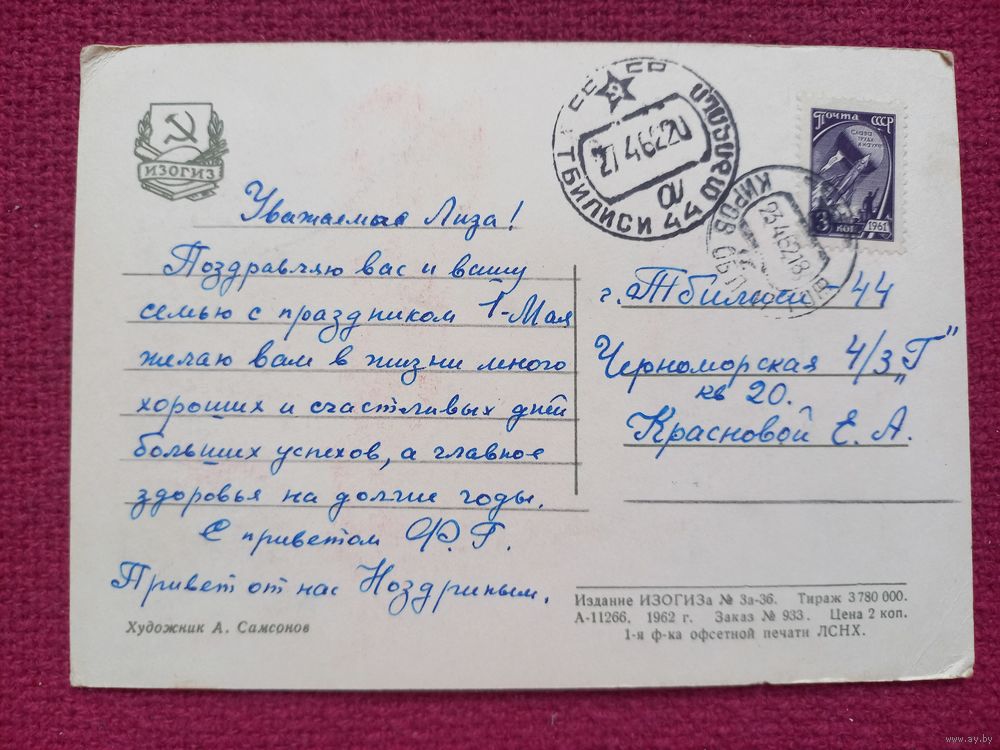 ИЗОГИЗ
СССР
ТБИЛИСИ 44
Почта СССР
Слава труду и науке
3 коп
1961
КИРОВ ОБЛ
23 4 62 18
Уважаемая Лиза!
Поздравляю вас и вашу
семью с праздником 1-Мая
желаю вам в жизни много
хороших и счастливых дней
больших успехов, а главное
здоровья на долгие годы.
С приветом Ф. Г.
Привет от нас Ноздриным.
г. Тбилиси - 44
Черноморская 4/3 „Г"
кв 20.
Красновой Е. А.
Художник А. Самсонов
Издание ИЗОГИЗа № 3а-36. Тираж 3 780 000.
А-11266. 1962 г. Заказ № 933. Цена 2 коп.
1-я ф-ка офсетной печати ЛСНХ.
www.ay.by